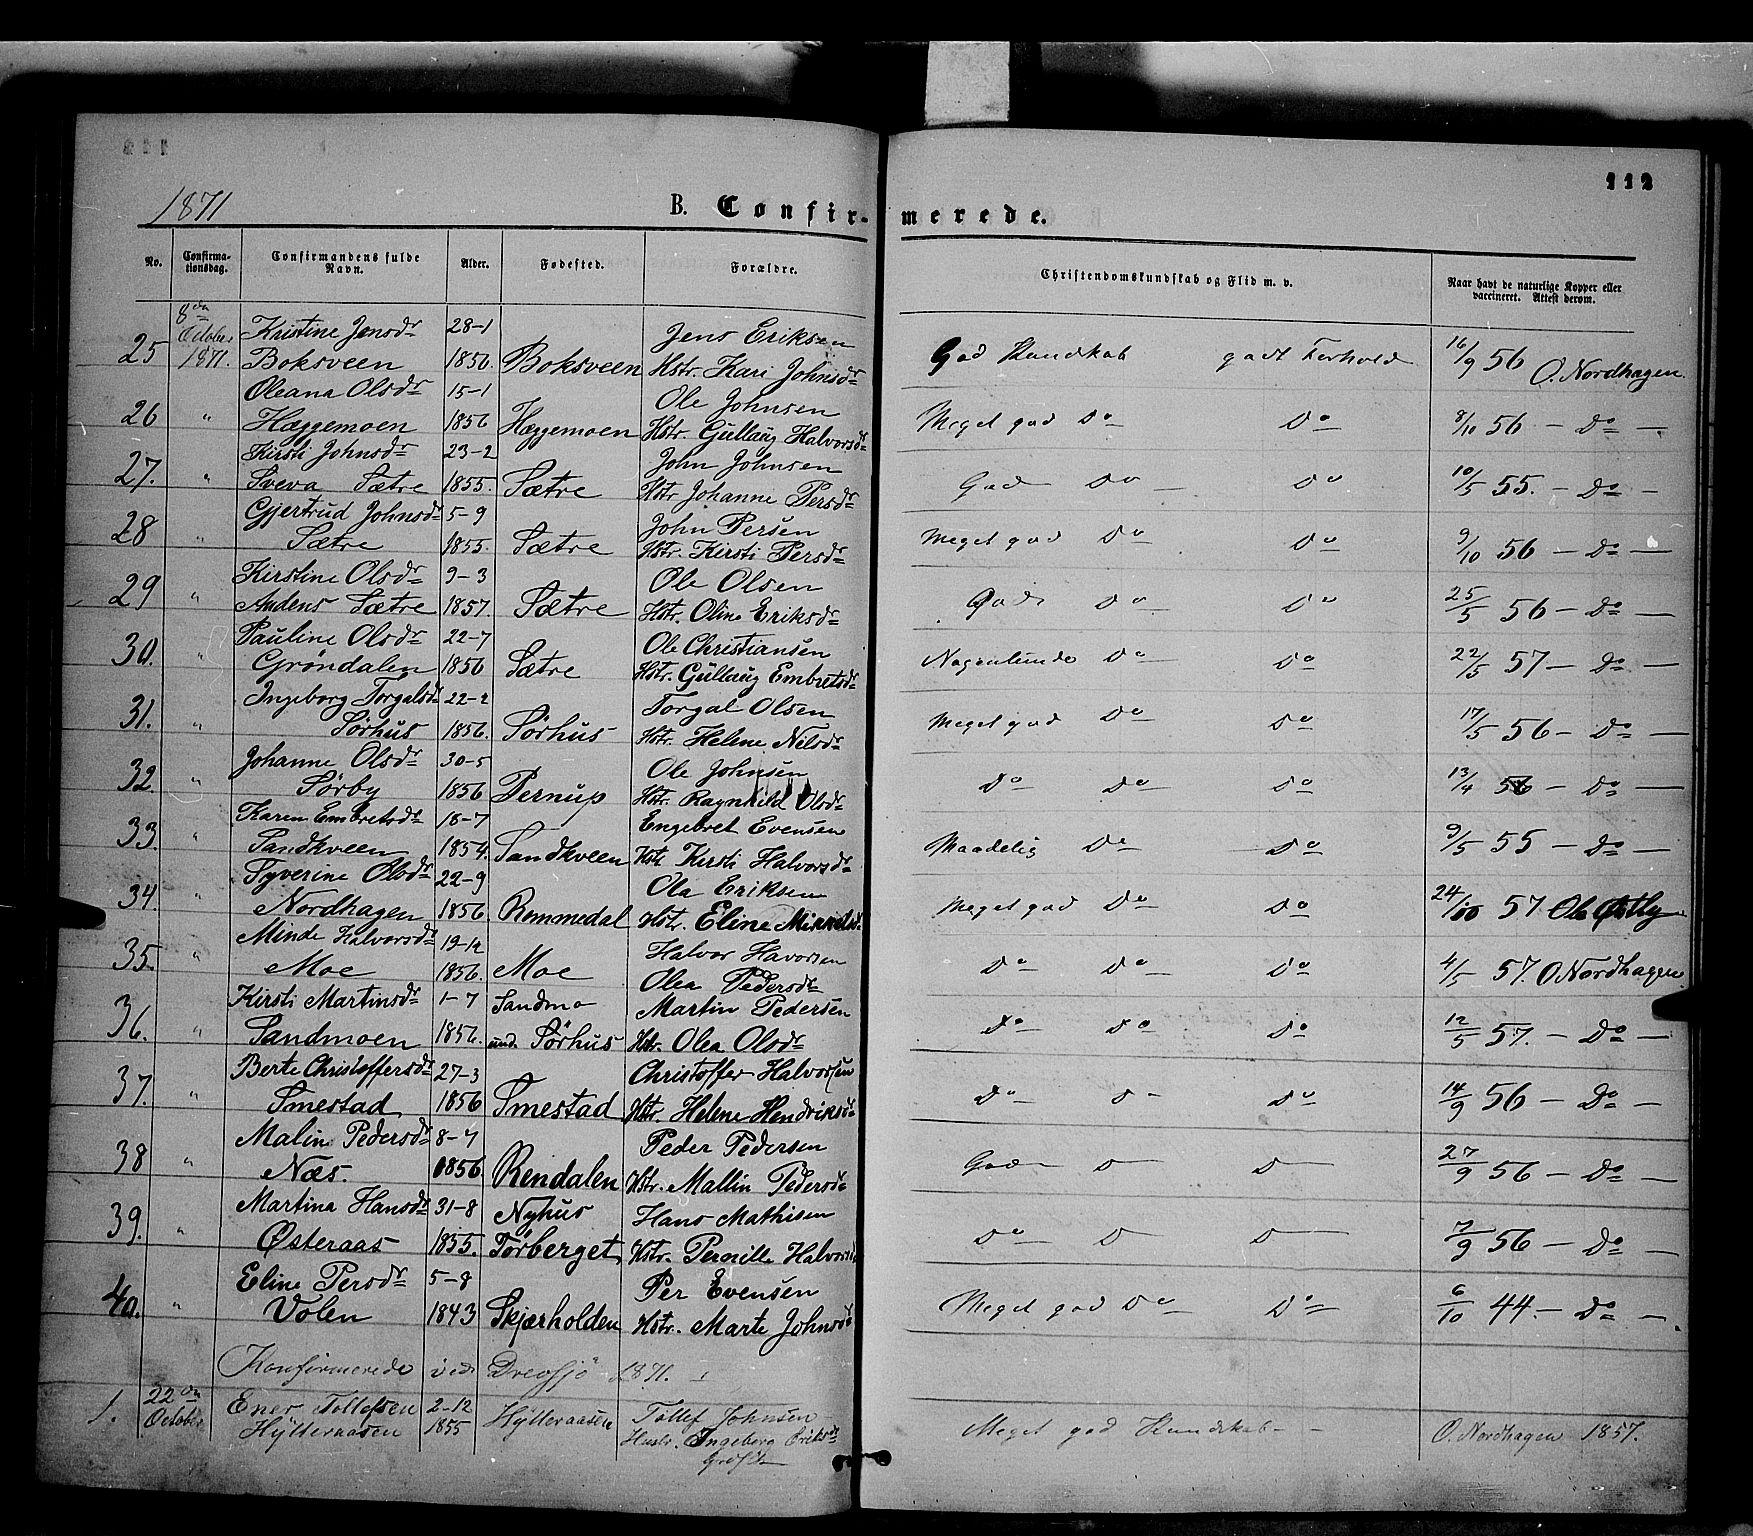 112
1871
B. Confirmerede.
No. Confirmationsdag. Confirmandens fulde Navn. Alder. Fødested. Forældre. Christendomskundskab og Flid m. v. Naar havt de naturlige Kopper eller vaccineret. Attest derom.
8de October Kristine Jensdr 28-1 Jens Eriksen
25 1871. Boksveen 1856. Boksveen Hstr. Kari Johnsdr God Kundskab godt Forhold 16/9 56 O. Nordhagen
Oleana Olsdr 15-1 Ole Johnsen
26 " Hæggemoen 1856 Hæggemoen Hstr. Gullaug Halvorsdr Meget god Do Do 8/10 56 - Do -
Kirsti Johnsdr 23-2 John Johnsen
27. " Sveva Sætre 1855. Sætre Hstr Johanne Persdr God Do - Do 10/5 55. - Do -
Gjertrud Johnsdr 5-9 John Persen
28 " Sætre 1855. Sætre Hstr. Kirsti Persdr Meget god Do Do 9/10 56 - Do -
Kirstine Olsdr 9-3 Ole Olsen
29 " Andens Sætre 1857. Sætre Hstr. Oline Eriksdr God Do Do 25/5 56 - Do -
Pauline Olsdr 22-7 Ole Christiansen
30. " Grøndalen 1856 Sætre Hstr. Gullaug Embretsdr Nogenlunde Do Do 22/5 57 - Do -
Ingeborg Torgalsdr 22-2 Torgal Olsen
31. " Sørhus 1856. Sørhus Hstr. Helene Nilsdr Meget god Do Do 17/5 56 - Do -
Johanne Olsdr 30-5 Ole Johnsen
32. " Sørby 1856 Pernup Hstr. Ragnhild Olsdr Do Do Do 13/4 56 - Do -
Karen Embretsdr 18-7 Engebret Evensen
33. " Sandkveen 1854. Sandkveen Hstr. Kirsti Halvorsdr Maadelig Do Do 9/5 55 - Do -
Syverine Olsdr 22-9 Ola Eriksen
34. " Nordhagen 1856. Remmedal Hstr. Eline Mikkelsdr Meget god Do Do 24/10 57 Ole Østby
Minde Halvorsdr Halvor Havorsen
35. " Moe 1856. Moe Olea Pedersdr Do Do Do 4/5 57. O. Nordhagen
Kirsti Martinsdr 1-7 Sandmo Martin Pedersen
36. " Sandmoen 1856. und. Sørhus Hstr. Olea Olsdr Do Do Do 12/5 57. - Do -
Berte Christoffersdr 27-3 Christoffer Halvorsen
37. " Smestad 1856 Smestad Hstr. Helene Hendriksdr Do D - Do 14/9 56 - Do -
Malin Pedersdr 8-7 Peder Pedersen
38 " Næs. 1856. Rendalen Hstr. Mallin Pedersdr God D D 27/9 56 - Do
Martina Hansdr 31-8 Nyhus Hans Mathisen
39. " Østeraas 1855. Tørberget Hstr. Pernille Halvorsdr Do D D 7/9 56 - Do -
Eline Persdr 5-8 Per Evensen
40. " Volen 1843 Skjærholden Hstr. Marte Johnsdr Meget god Do Do 6/10 44 - Do -
Konfirmerede ved Drevsjø 1871.
1. 22den Ener Tollefsen 2-12 Hÿlleraasen Tollef Johnsen
October Hÿlleraasen 1855 Hustr. Ingeborg Eriksdr Meget god Kundskab - - O. Nordhagen 1857.